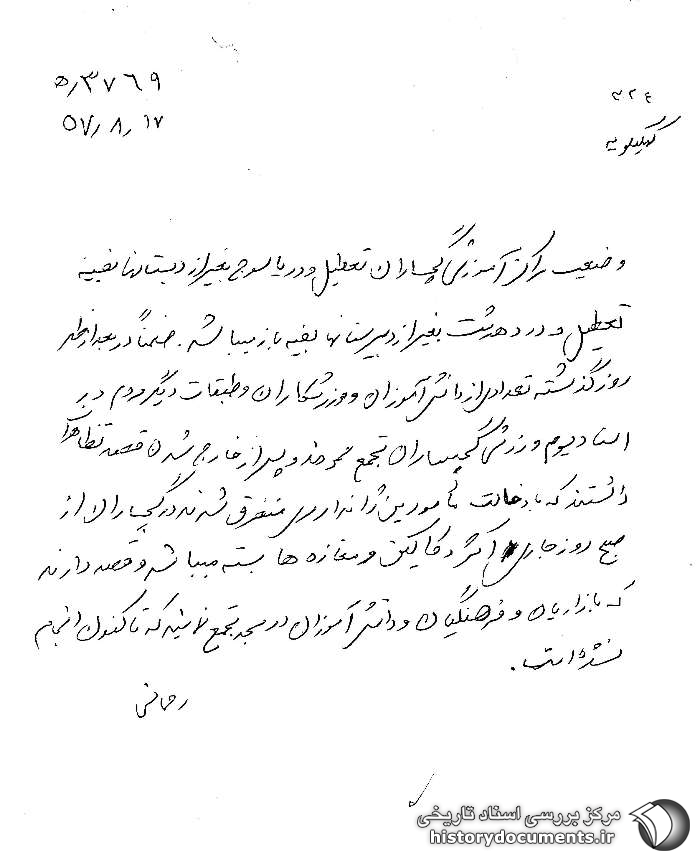 ۵/۳۷۶۹
۵۷/۸/۱۷
۳۲۴
کهگیلویه
وضعیت مراکز آموزشی گچساران تعطیل و در یاسوج بغیر از دبستانها بقیه
تعطیل و در دهدشت بغیر از دبیرستانها بقیه باز میباشد. ضمناً در بعدازظهر
روز گذشته تعدادی از دانش آموزان و ورزشکاران و طبقات دیگر مردم در
استادیوم ورزشی گچساران تجمع نموده و پس از خارج شدن قصد تظاهر
داشتند که با دخالت مأمورین ژاندارمری متفرق شدند در گچساران از
صبح روز جاری اکثر دکاکین و مغازه ها بسته میباشد و قصد دارند
که بازاریان و فرهنگیان و دانش آموزان در مسجد تجمع نمایند که تاکنون انجام
نشده است.
رحمانی
مرکز بررسی اسناد تاریخی
historydocuments.ir